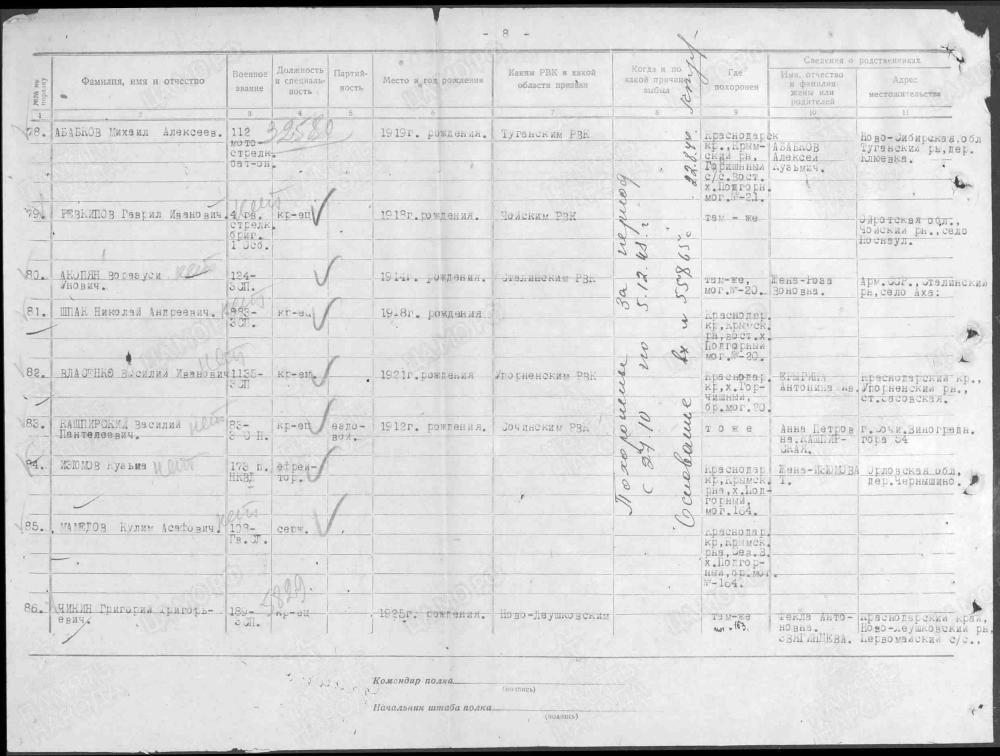 - 8 -
№№ по порядку
Фамилия, имя и отчество
Военное звание
Должность и специальность
Партийность
Место и год рождения
Каким РВК и какой области призван
Когда и по какой причине выбыл
Где похоронен
Сведения о родственниках
Имя, отчество и фамилия жены или родителей
Адрес местожительства
1 2 3 4 5 6 7 8 9 10 11
78. АБАБКОВ Михаил Алексеев. 112 мото-стрелк. бат-он. 32580 1919г. рождения. Туганским РВК Краснодарск кр., Крымский рн. с/с. Вост. х.Подгорн. мог.№-21. АБАБКОВ Алексей Кузьмич. Ново-Сибирская,обл Туганский рн,дер. Клюевка.
79. РЕВКИПОВ Гаврил Иванович. нет 4 гв. стрелк. бриг. 1 Осб. кр-ец 1918г.рождения. Чойским РВК там - же Ойротская обл., Чойский рн.,село
80. АКОПЯН нет 1914г. рождения. Сталинским РВК там-же, мог.№-20. Арм.ССР., Сталинский рн,село
81. ШПАК Николай Андреевич. нет кр-ец 1918г. рождения Краснодар. кр,Крымск. рн,вост.х. Подгорный мог.№-20.
82. ВЛАСЕНКО Василий Иванович нет 1135-ЗСП кр-ец 1921г.рождения Упорненским РВК Краснодар. кр,х.Горчишный, бр.мог.20. Антонина Краснодарский кр., Упорненский рн., ст.Засовская.
83. КАШПИРСКИЙ Василий Пантелеевич. нет кр-ец ездовой. 1912г. рождения. Сочинским РВК т о ж е Анна Петровна.КАШПИРСКАЯ. г.Сочи.Виноградн. гора 34
84. ИЗЮМОВ Кузьма нет 173 п. НКВД ефрейтор. Краснодар кр,Крымск. рна,х.Подгорный, мог.164. Жена-ИЗЮМОВА Т. Орловская обл, дер.Чернышино.
85. МАМЕДОВ Кулим Асафович. нет 108-Гв.СП. серж. Краснодар. кр,Крымск. рна,Сев.В. х.Подгорный,бр.мог. №-164.
86. ЧИКИН Григорий Григорьевич. 5829 189-ЗСП. кр-ец 1925г. рождения. Ново-Леушковским там-же мог. 163. Текла Антоновна. ЗВЯГИНЦЕВА. Краснодарский край, Ново-Леушковский рн, Первомайский с/с.,
Похоронены за период
с 27.10 по 5.12.43 г
Основание вх № 55865с 22.8.44
Командир полка
(подпись)
Начальник штаба полка
(подпись)